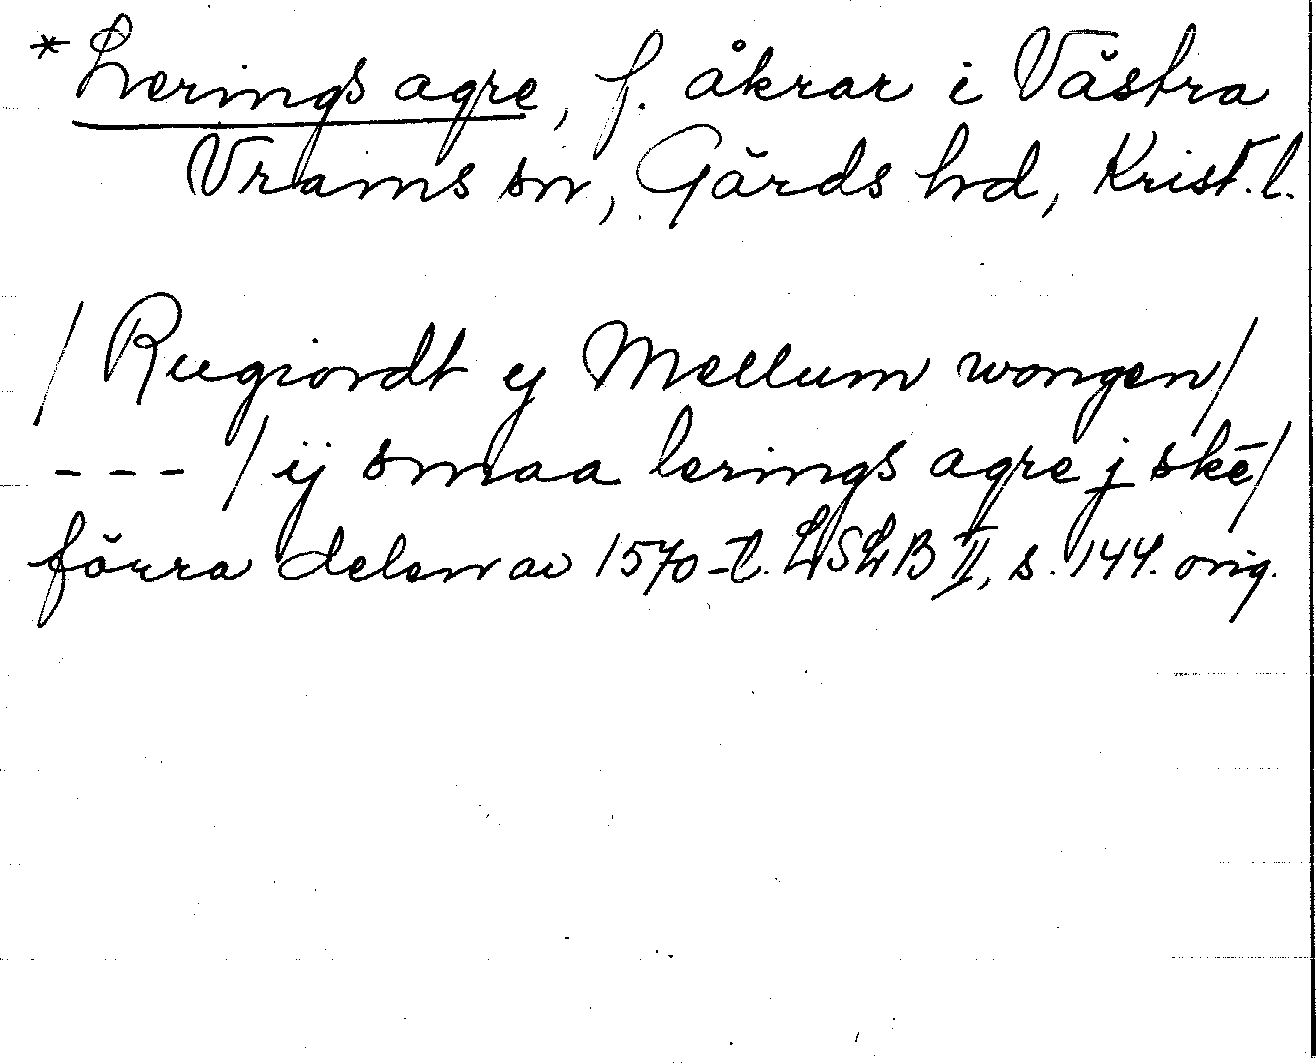 *Lerings agre, f. åkrar i Västra
Vrams sn, Gärds hd, Krist. l.
/ Rugiordt ij Mellum wongen /
--- / ij smaa lerings agre j ske /
förra delen av 1570-t. LSLB II, s. 144. orig.